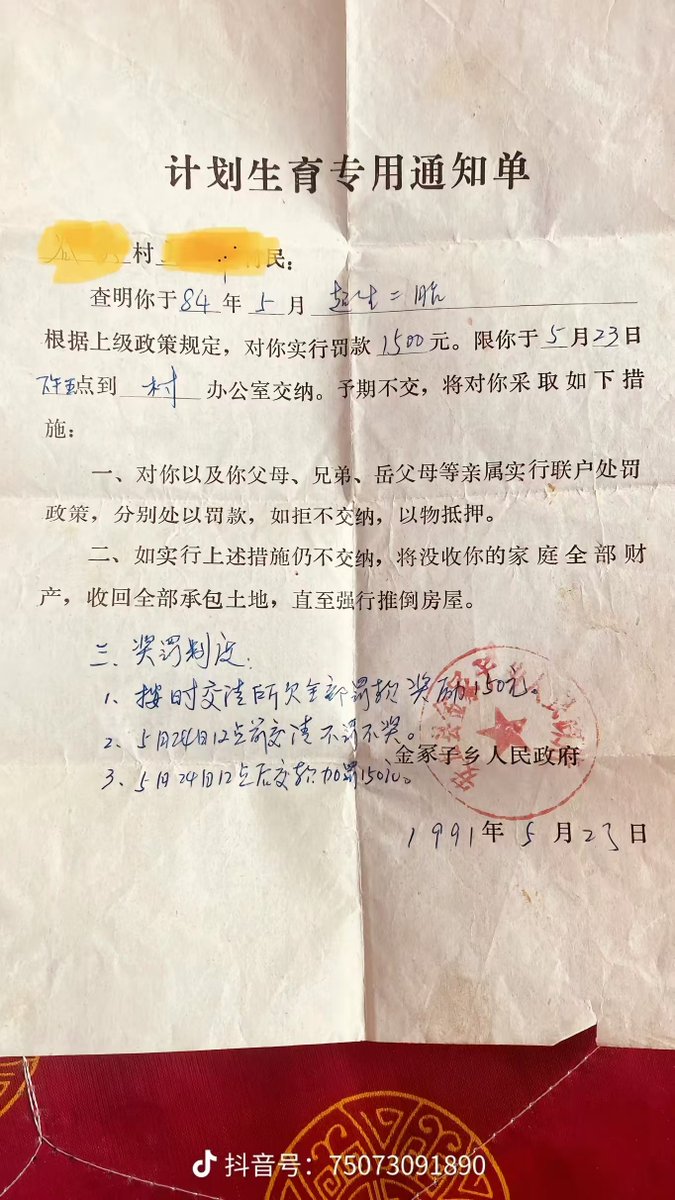 计划生育专用通知单
村 民：
查明你于84年5月超生二胎
根据上级政策规定，对你实行罚款1500元。限你于5月23日
下午五点到 村 办公室交纳。予期不交，将对你采取如下措
施：
一、对你以及你父母、兄弟、岳父母等亲属实行联户处罚
政策，分别处以罚款，如拒不交纳，以物抵押。
二、如实行上述措施仍不交纳，将没收你的家庭全部财
产，收回全部承包土地，直至强行推倒房屋。
三、奖罚制度：
1、按时交清所欠全部罚款奖励150元。
2、5月24日12点前交清不罚不奖。
金冢子乡人民政府
3、5月24日12点后交款加罚150元。
1991年5月23日
抖音号：75073091890